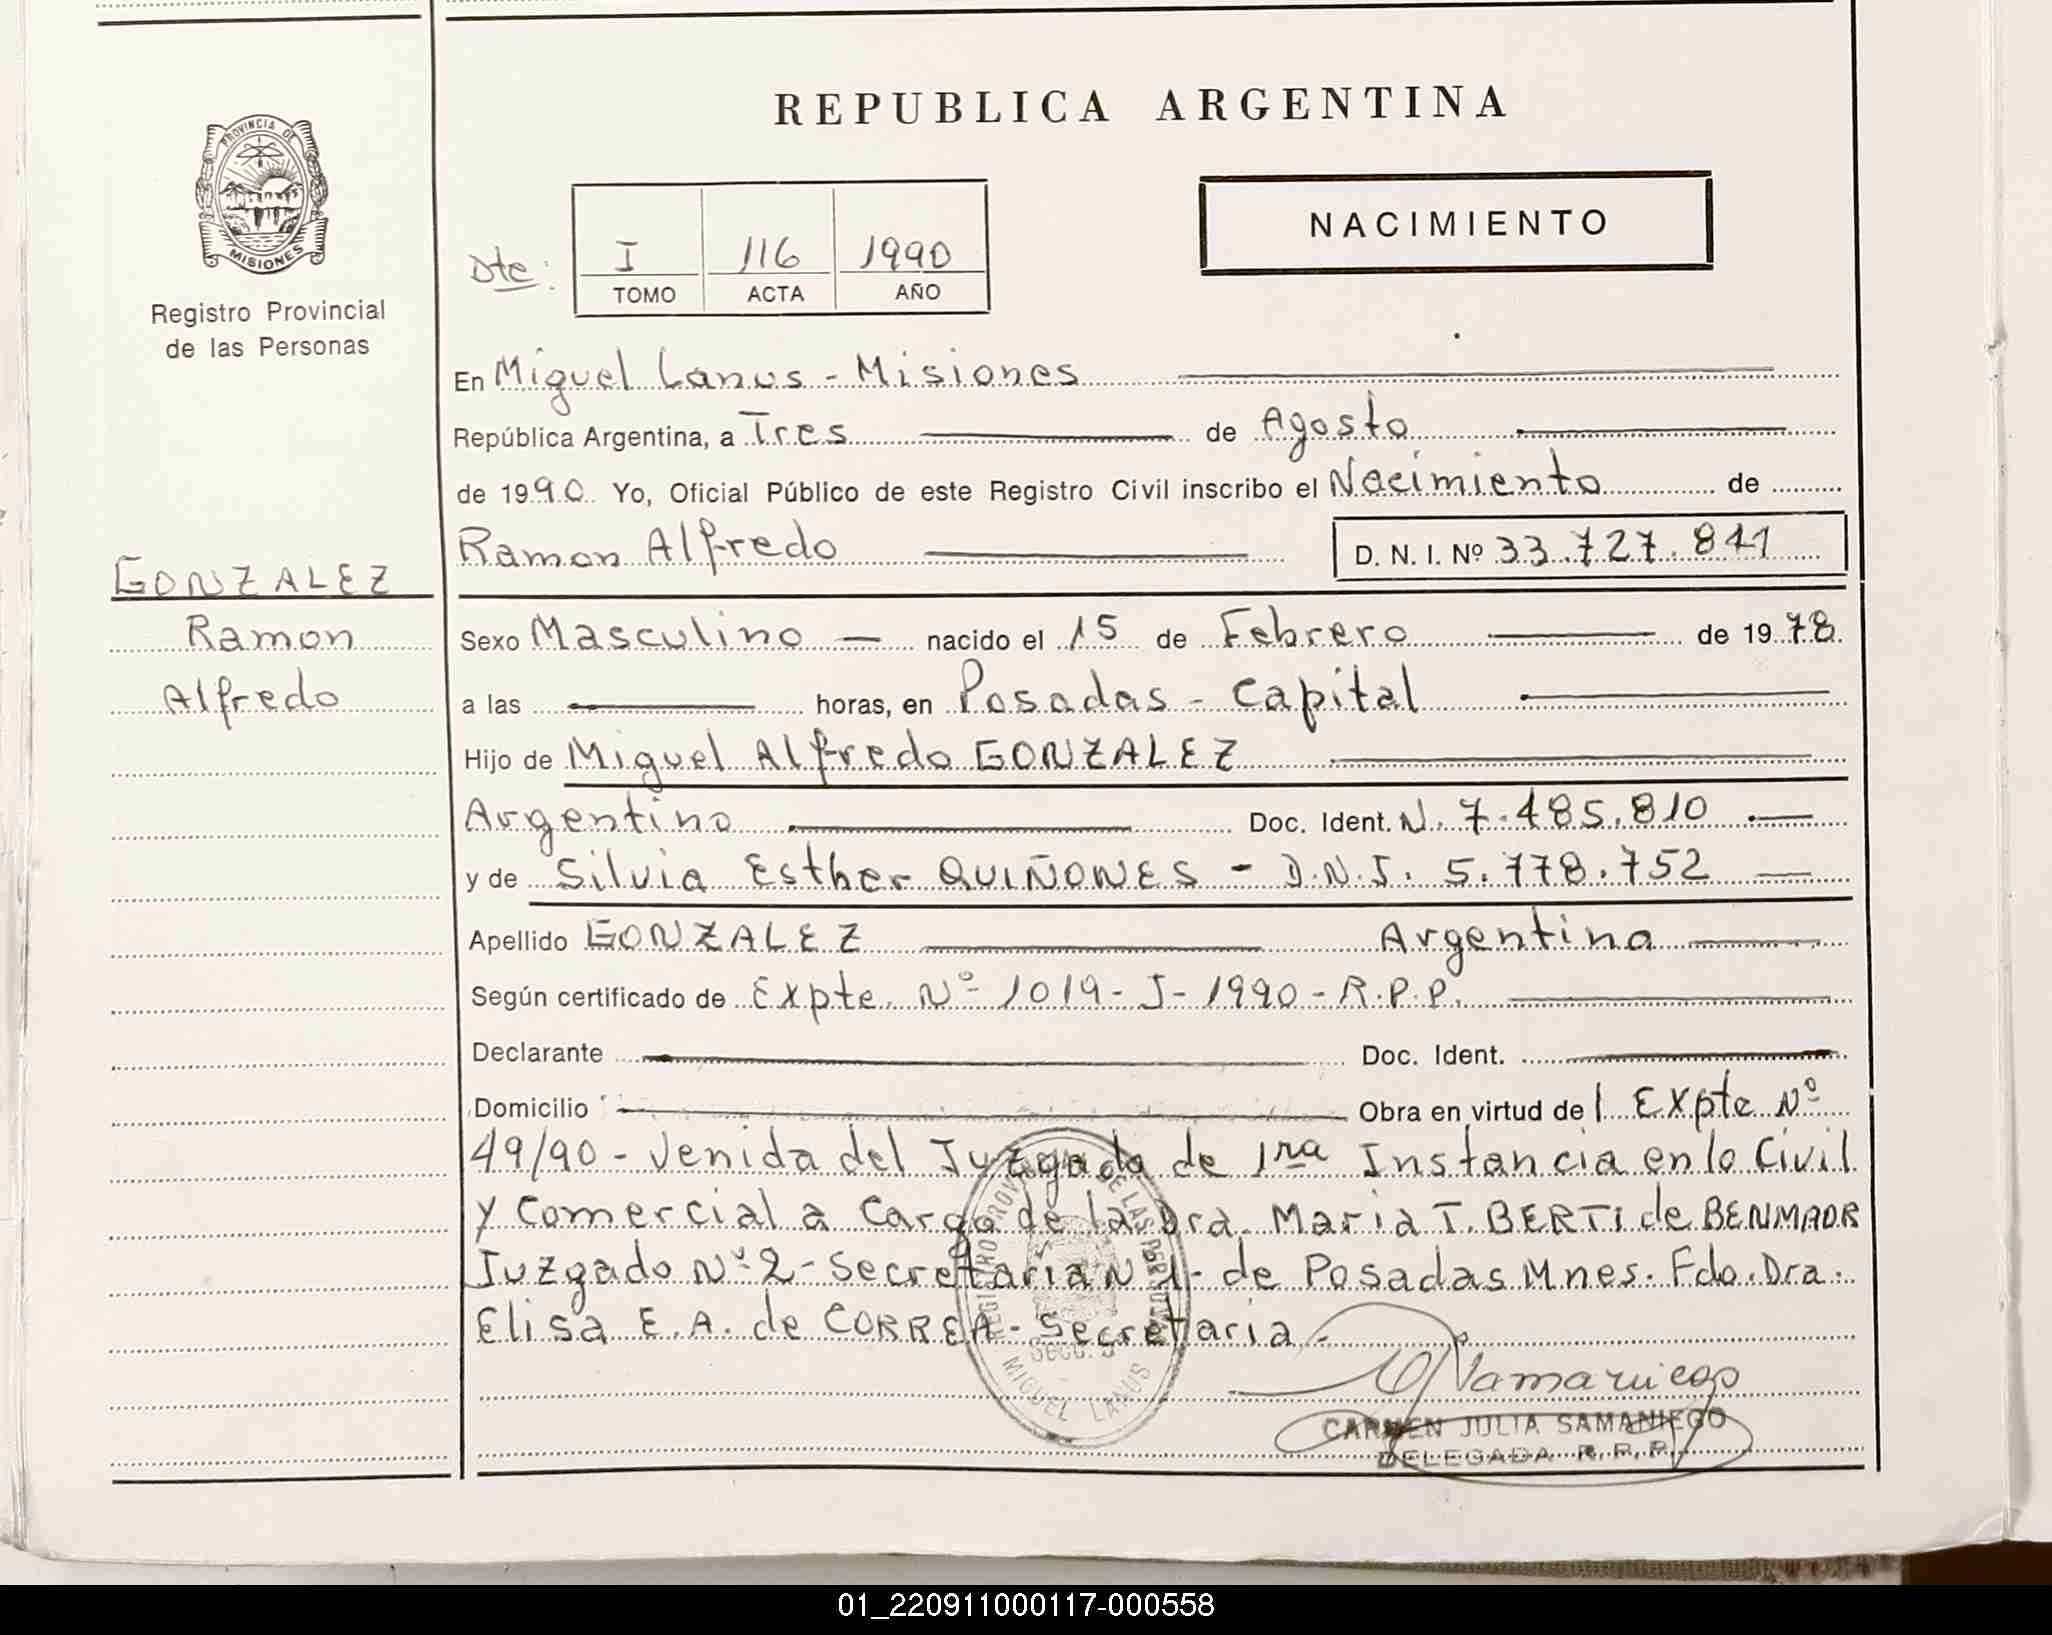 REPUBLICA ARGENTINA
PROVINCIA DE
MISIONES
Registro Provincial
de las Personas
NACIMIENTO
Dte: I 116 1990
TOMO ACTA AÑO
En Miguel Lanus - Misiones
República Argentina, a Tres de Agosto
de 1990 Yo, Oficial Público de este Registro Civil inscribo el Nacimiento de
Ramon Alfredo D. N. I. Nº 33.727.841
GONZALEZ
Ramon
Alfredo
Sexo Masculino nacido el 15 de Febrero de 1978.
a las horas, en Posadas - Capital
Hijo de Miguel Alfredo GONZALEZ
Argentino Doc. Ident. N. 7.485.810
y de Silvia Esther QUIÑONES - D.N.I. 5.778.752
Apellido GONZALEZ Argentina
Según certificado de Expte. Nº 1019-J-1990-R.P.P.
Declarante Doc. Ident.
Domicilio Obra en virtud del Expte Nº
49/90 - Venida del Juzgado de 1ra Instancia en lo Civil
y Comercial a Cargo de la Dra. Maria T. BERTI de BENMAOR
Juzgado Nº 2 - Secretaria Nº 1 - de Posadas Mnes. Fdo. Dra.
Elisa E. A. de CORREA - Secretaria -
SECC. 
MIGUEL LANUS
CARMEN JULIA SAMANIEGO
DELEGADA R.R.P.
01_220911000117-000558